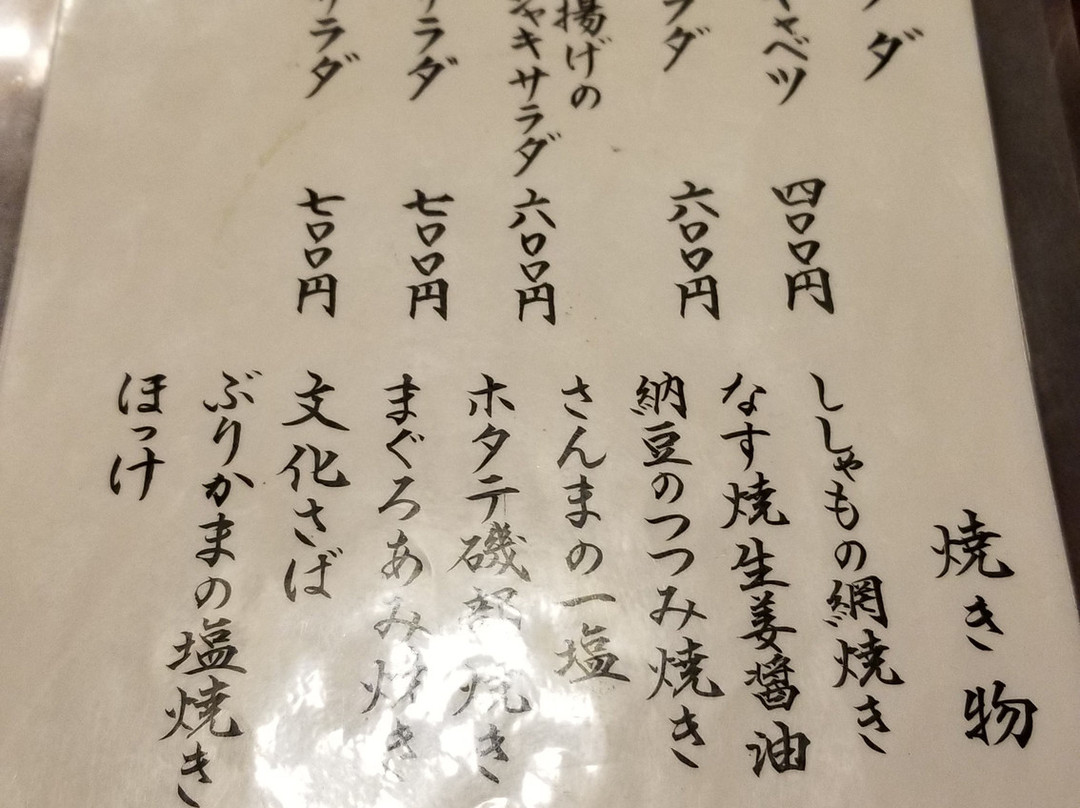 ダ
キャベツ
四〇〇円
ラダ
六〇〇円
揚げの
シャキサラダ
六〇〇円
サラダ
七〇〇円
サラダ
七〇〇円
焼き物
ししゃもの網焼き
なす焼生姜醤油
納豆のつつみ焼き
さんまの一塩
ホタテ磯部焼き
まぐろあみ焼き
文化さば
ぶりかまの塩焼き
ほっけ